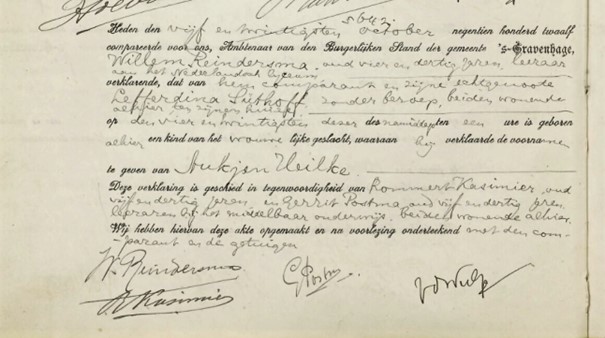 5642
Heden den vijf en twintigsten October negentien honderd twaalf
compareerde voor ons, Ambtenaar van den Burgerlijken Stand der gemeente 's-Gravenhage,
Willem Reindersma, oud vier en dertig jaren, leeraar
aan het Nederlandsch Lyceum
verklarende, dat van hem comparant en zijne echtgenoote
Lefferdina Sijthoff zonder beroep, beiden wonende
alhier ten zijnen huize
op den vier en twintigsten dezer des namiddags ten een ure is geboren
alhier een kind van het vrouwelijke geslacht, waaraan hij verklaarde de voorname
te geven van Aukjen Heilke.
Deze verklaring is geschied in tegenwoordigheid van Rommert Kasimier, oud
vijf en dertig jaren, en Gerrit Postma, oud vijf en dertig jaren,
leeraren bij het middelbaar onderwijs, beiden wonende alhier.
Wij hebben hiervan deze akte opgemaakt en na voorlezing onderteekend met den com-
parant en de getuigen
W. Reindersma
R Kasimier
G Postma